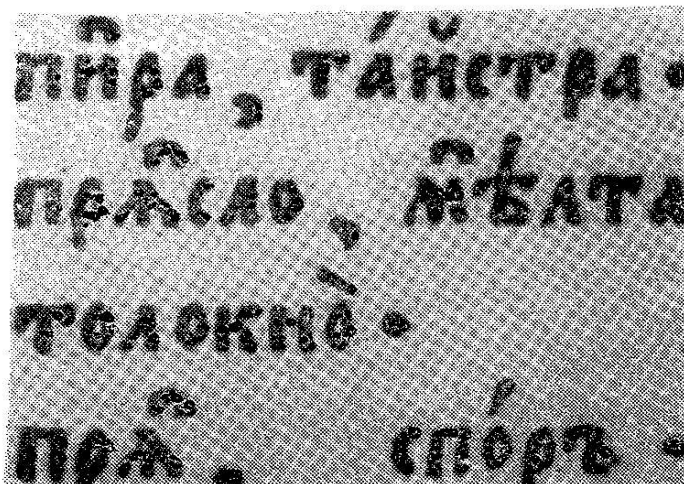 пи̑ра, та́йстра.
прѧ̑сло, м̑ѣлта
толокно̀.
прѧ̑. спо́ръ.